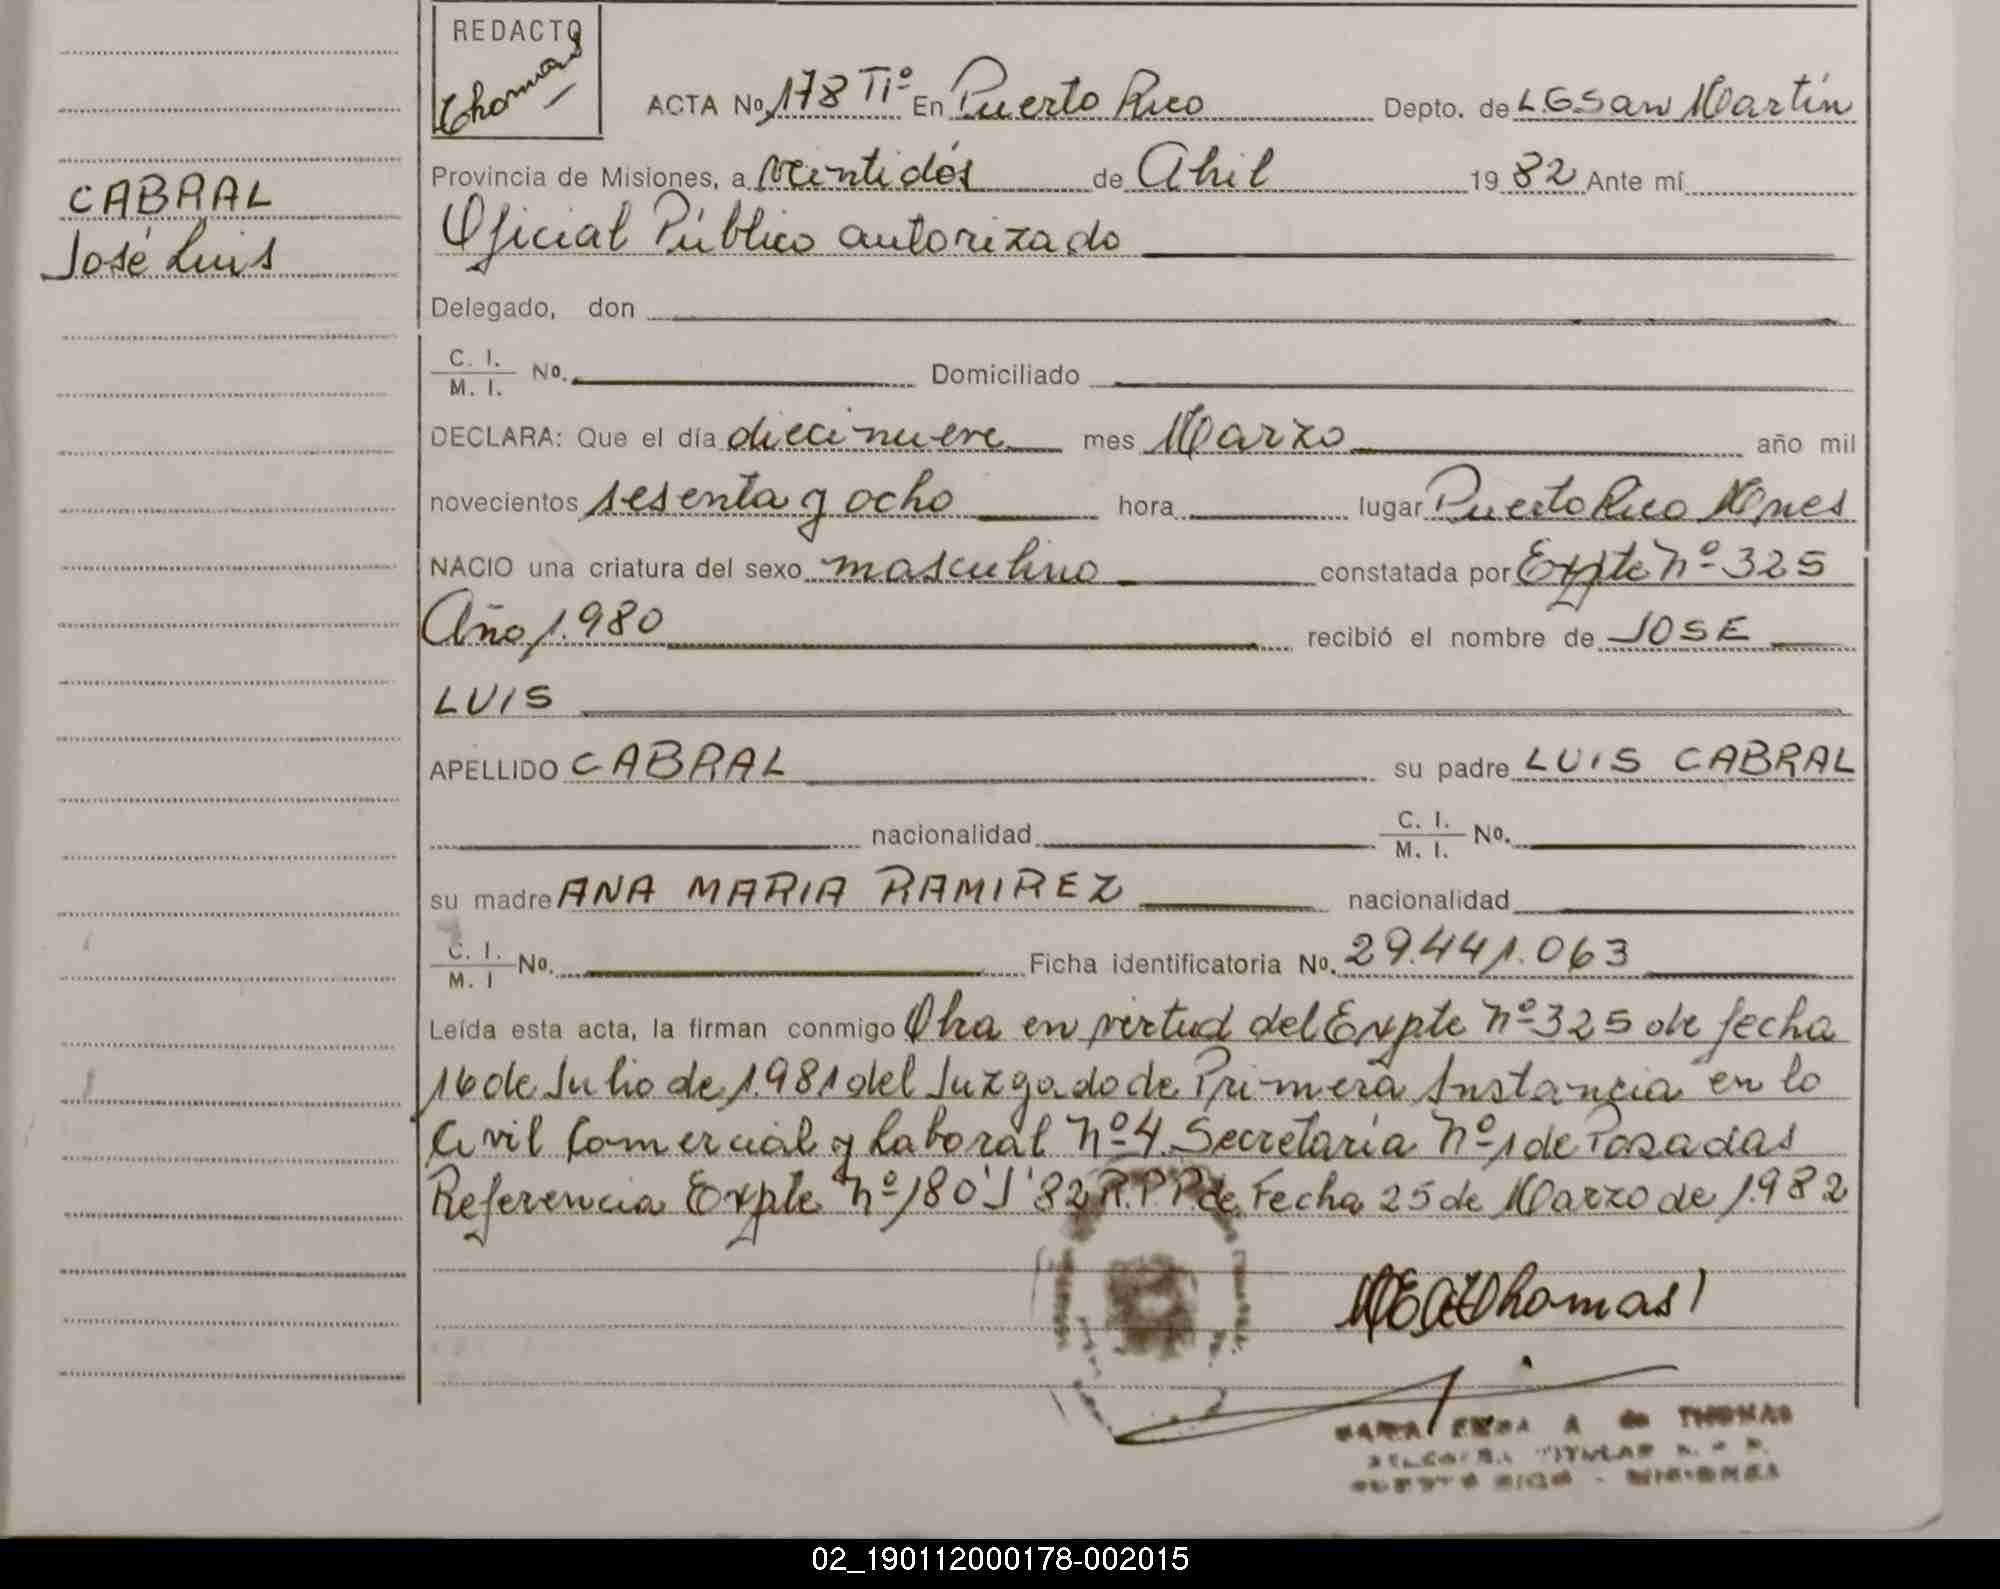 REDACTO
Thomas
ACTA No. 178 Tiº En Puerto Rico Depto. de L G San Martín
Provincia de Misiones, a veintidós de Abril 19 82 Ante mí
CABRAL
Oficial Público autorizado
José Luis
Delegado, don
C. I.
M. I. No. Domiciliado
DECLARA: Que el día diecinueve mes Marzo año mil
novecientos sesenta y ocho hora lugar Puerto Rico Mnes
NACIO una criatura del sexo masculino constatada por Expte Nº 325
Año 1.980 recibió el nombre de JOSE
LUIS
APELLIDO CABRAL su padre LUIS CABRAL
nacionalidad C. I. M. I. No.
su madre ANA MARIA RAMIREZ nacionalidad
C. I. M. I No. Ficha identificatoria No. 29.441.063
Leída esta acta, la firman conmigo en virtud del Expte Nº 325 de fecha
16 de Julio de 1.981 del Juzgado de Primera Instancia en lo
Civil Comercial y Laboral Nº 4 Secretaría Nº 1 de Posadas
Referencia Expte Nº 180'J'82 R.P.P. de Fecha 25 de Marzo de 1.982
Thomas
MARIA A de THOMAS
TITULAR
PUERTO RICO - MISIONES
02_190112000178-002015